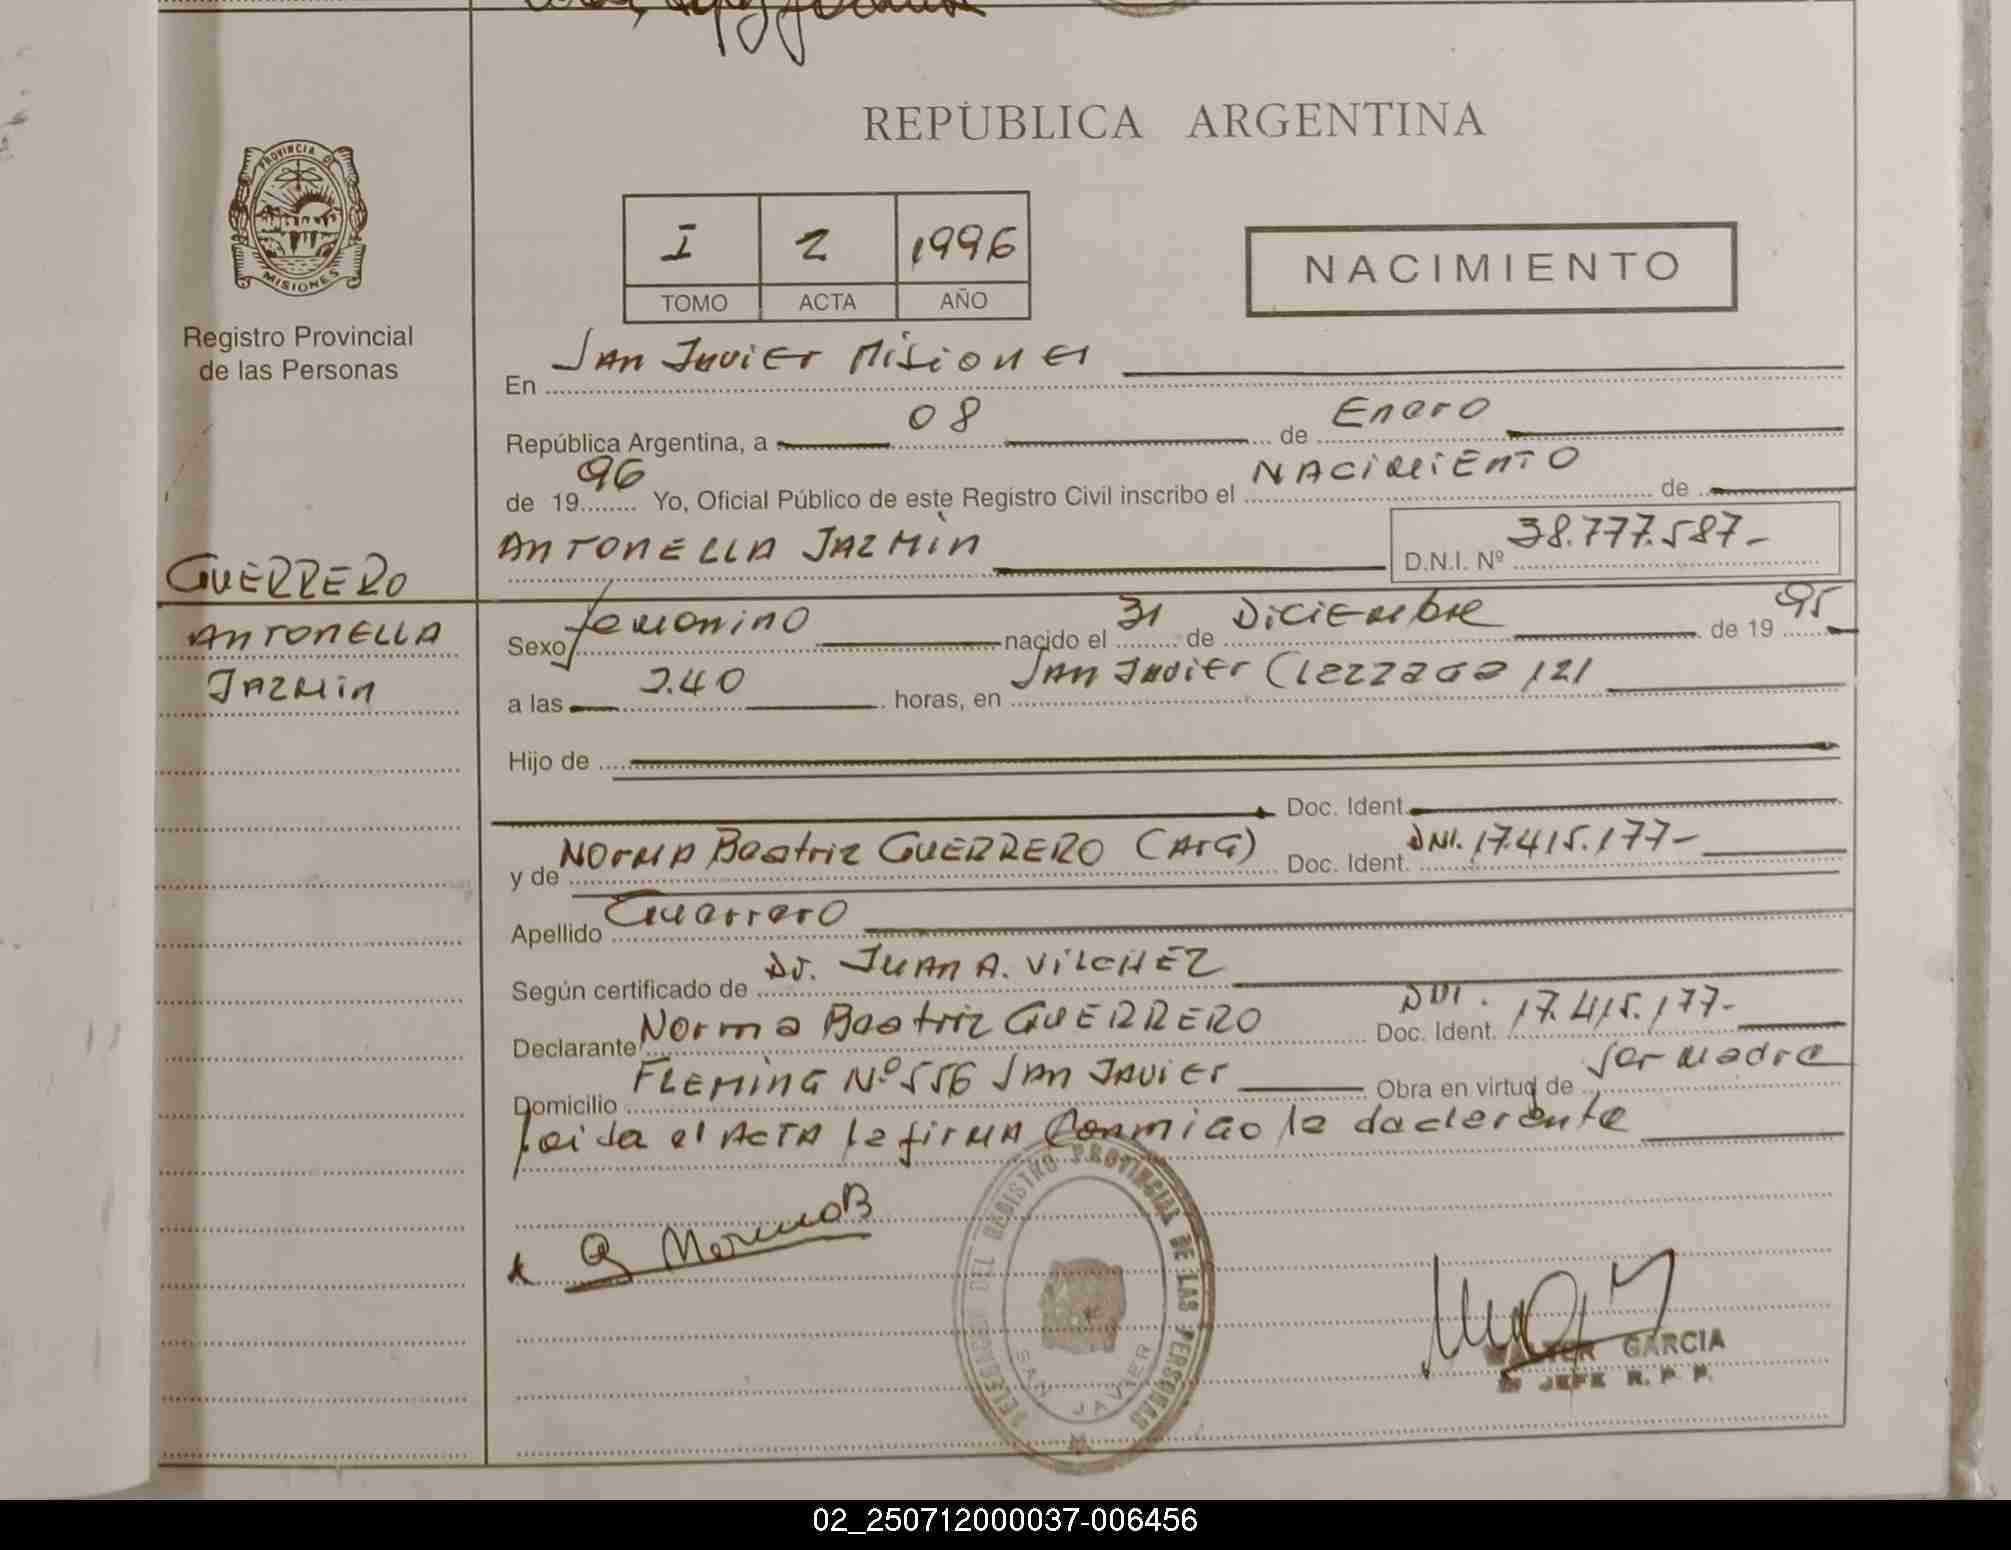 REPÚBLICA ARGENTINA
PROVINCIA DE
MISIONES
Registro Provincial
de las Personas
I 2 1996
TOMO ACTA AÑO
NACIMIENTO
En San Javier Misiones
República Argentina, a 08 de Enero
de 1996 Yo, Oficial Público de este Registro Civil inscribo el NACIMIENTO de
ANTONELLA JAZMIN D.N.I. Nº 38.777.587-
GUERRERO
ANTONELLA
JAZMIN
Sexo femenino nacido el 31 de Diciembre de 1995
a las 2.40 horas, en San Javier 121
Hijo de
Doc. Ident.
y de Norma Beatriz GUERRERO (Arg) Doc. Ident. DNI. 17.415.177-
Apellido Guerrero
Según certificado de Dr. JUAN A. VILCHEZ
Declarante Norma Beatriz GUERRERO Doc. Ident. DNI. 17.415.177-
Domicilio FLEMING Nº 556 SAN JAVIER Obra en virtud de ser madre
Leida el ACTA la firma Conmigo la declarante
DEL REGISTRO PROVINCIAL DE LAS PERSONAS
SAN JAVIER
GARCIA
JEFE R. P. P.
02_250712000037-006456